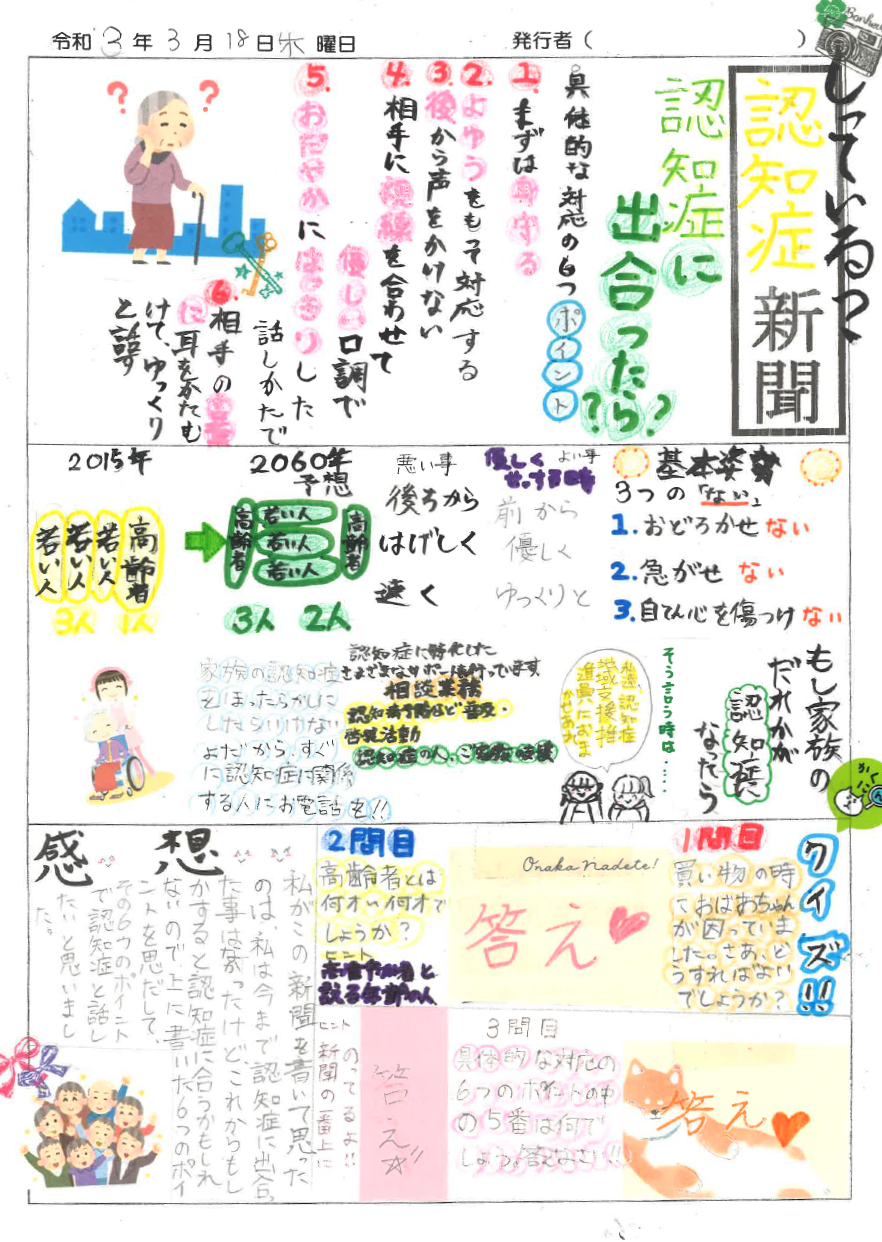 令和3年3月18日木曜日
発行者( )
Bonheur
しっている?
認知症新聞
認知症に
出合ったら??
具体的な対応の6つポイント
1.まずは見守る
2.よゆうをもって対応する
3.後から声をかけない
4.相手に視線を合わせて
優しい口調で
5.おだやかにはっきりした
話しかたで
6.相手の
に耳をかたむ
けて、ゆっくり
と話す
基本姿勢
3つの「ない」
1.おどろかせない
2.急がせない
3.自そん心を傷つけない
よい事
優しく
せっする時
前から
優しく
ゆっくりと
悪い事
後ろから
はげしく
速く
2060年
予想
高齢者
若い人
若い人
若い人
高齢者
3人 2人
2015年
高齢者
若い人
若い人
若い人
3人 1人
もし家族の
だれかが
認知症に
なたら
そう言う時は……
私達、認知症
地域支援推
進員におま
かせあれ
認知症に特化した
さまざまなサポートを行っています。
相談業務
認知症予防など普及・
啓発活動
認知症の人、ご家族の支援
家族の認知症
をほったらかしに
したらいけない
よだから、すぐ
に認知症に関係
する人にお電話を!!
クイズ!!
1問目
買い物の時
におばあちゃん
が困っていま
した。さあ、ど
うすればよい
でしょうか?
Onaka nadete!
答え
2問目
高齢者とは
何才い何才で
しょうか?
ヒント
と
言える年齢の人
3問目
具体的な対応の
6つのポイントの中
の5番は何で
しょう。答えなさい!!
答え
答え
ヒント
新聞の一番上に
のってるよ!!
感想
私がこの新聞を書いて思った
のは、私は今まで認知症に出合っ
た事はなかったけど、これからもし
かすると認知症に合うかもしれ
ないので上に書いた6つのポイ
ントを思だして、
その6つのポイント
で認知症と話し
たいと思いまし
た。